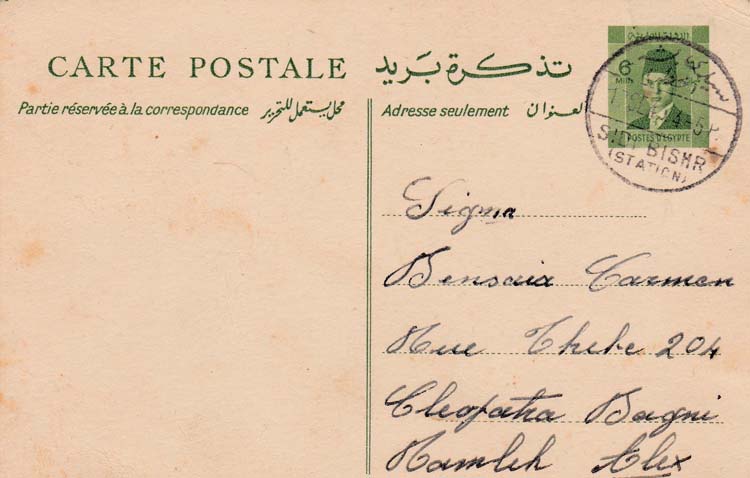 CARTE POSTALE تذكرة بريد
Partie réservée à la correspondance محل يستعمل للتحرير
Adresse seulement العنوان
6
MILLS
POSTES D'EGYPTE
SIDI BISHR
(STATION)
Sigma
Bensaia Carmen
Rue Thebe 204
Cleopatra Bagni
Ramleh Alex